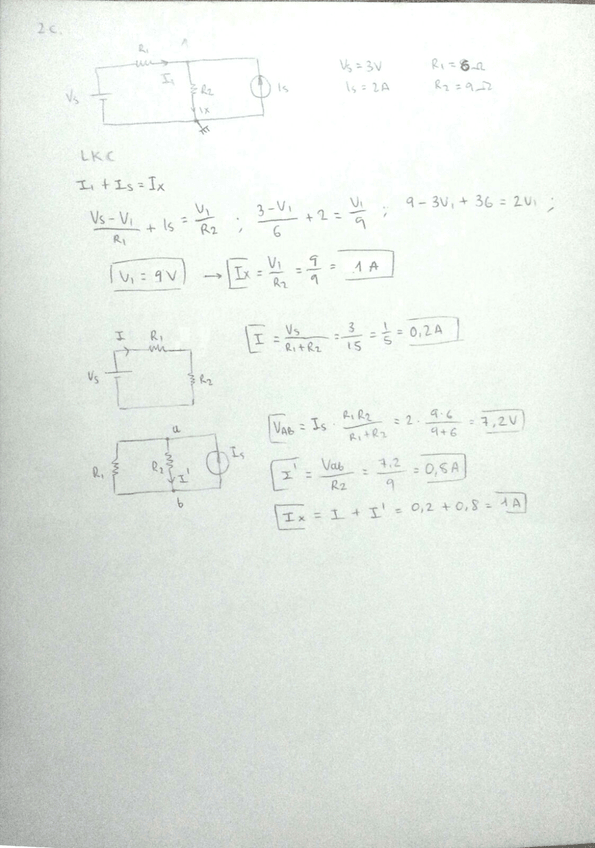 2c.
R₁
I₁
Vs
R₂
Ix
Is
Vs = 3V R₁ = 6Ω
Is = 2A R₂ = 9Ω
LKC
I₁ + Is = Ix
(Vs - V₁)/R₁ + Is = V₁/R₂ ; (3 - V₁)/6 + 2 = V₁/9 ; 9 - 3V₁ + 36 = 2V₁ ;
V₁ = 9V → Ix = V₁/R₂ = 9/9 = 1A
I R₁
Vs
R₂
I = Vs/(R₁+R₂) = 3/15 = 1/5 = 0,2A
a
R₁
R₂
I'
Is
b
VAB = Is · R₁R₂/(R₁+R₂) = 2 · 9·6/(9+6) = 7,2V
I' = Vab/R₂ = 7.2/9 = 0,8A
Ix = I + I' = 0,2 + 0,8 = 1A